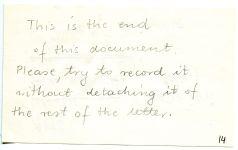 This is the end
of this document.
Please, try to record it
without detaching it of
the rest of the letter.
14